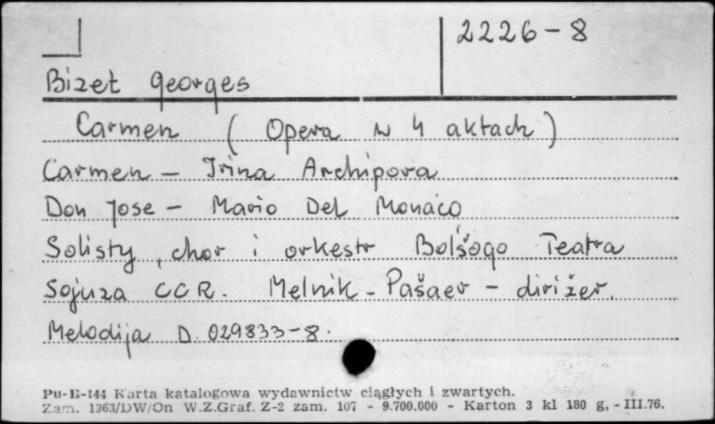 2226-8
Bizet Georges
Carmen ( Opera w 4 aktach )
Carmen - Irina Archipova
Don Jose - Mario Del Monaco
Solisty, chor i orkestr Bolšogo Teatra
Sojuza CCR. Melnik-Pašaev - dirižer.
Melodija D. 029833-8.
Pu-B-144 Karta katalogowa wydawnictw ciągłych i zwartych.
Zam. 1363/DW/On W.Z.Graf. Z-2 zam. 107 - 9.700.000 - Karton 3 kl 180 g. - III.76.